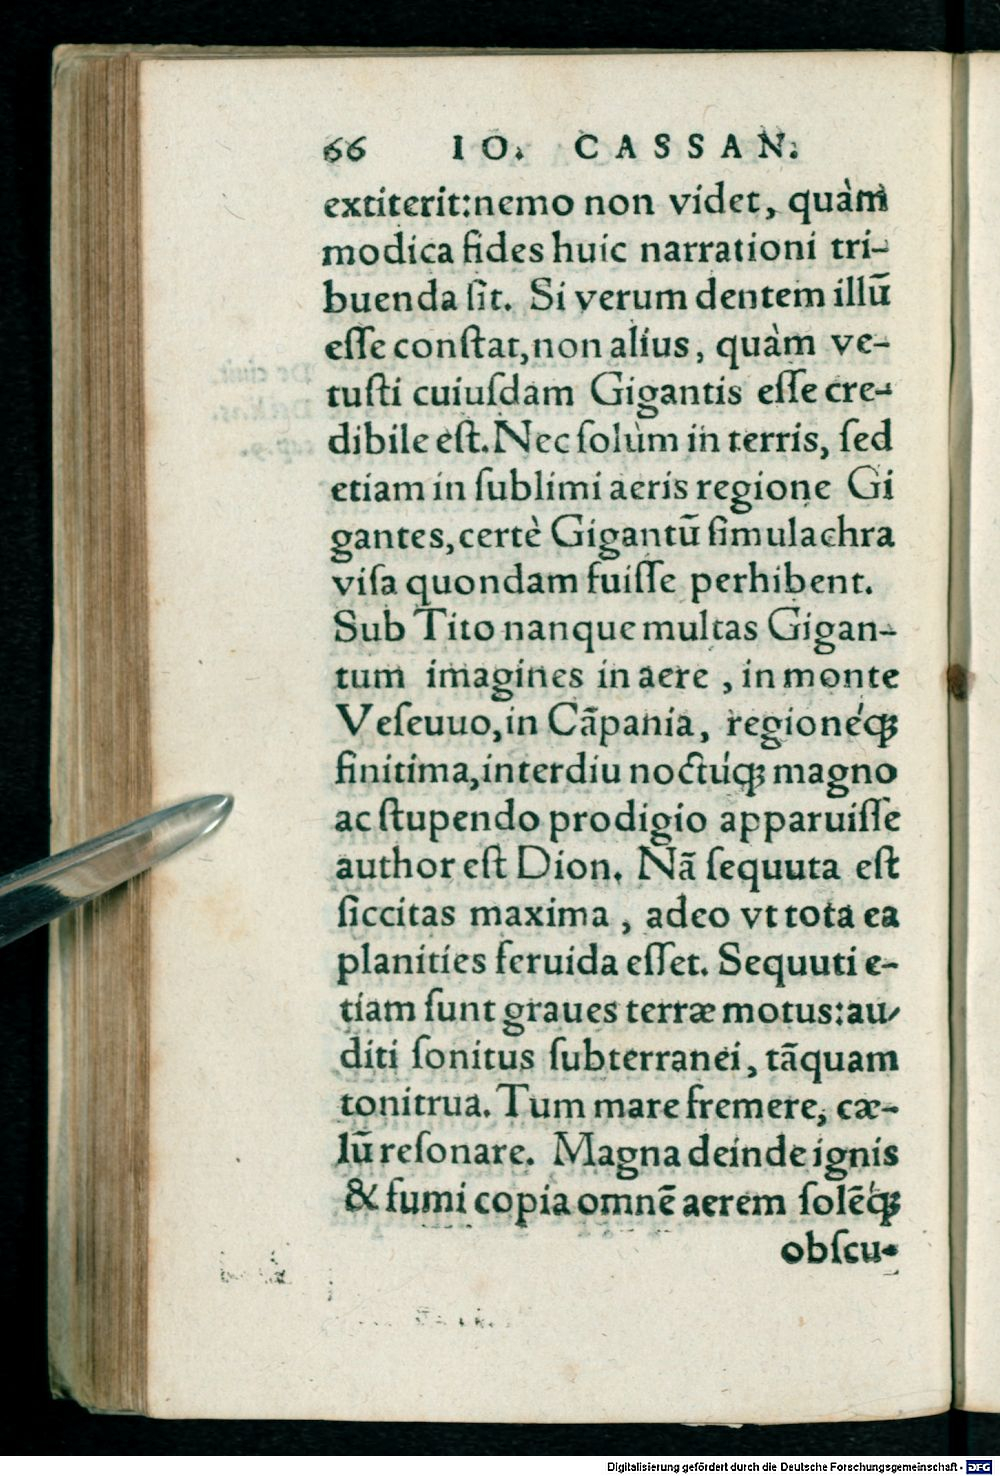 66 IO. CASSAN.
extiterit:nemo non videt, quàm
modica fides huic narrationi tri-
buenda ſit. Si verum dentem illũ
eſſe conſtat, non alius, quàm ve-
tuſti cuiuſdam Gigantis eſſe cre-
dibile eſt. Nec ſolùm in terris, ſed
etiam in ſublimi aeris regione Gi
gantes, certè Gigantũ ſimulachra
viſa quondam fuiſſe perhibent.
Sub Tito nanque multas Gigan-
tum imagines in aere , in monte
Veſeuuo, in Cãpania, regionéq;
finitima, interdiu noctúq; magno
ac ſtupendo prodigio apparuiſſe
author eſt Dion. Nã ſequuta eſt
ſiccitas maxima , adeo vt tota ea
planities feruida eſſet. Sequuti e-
tiam ſunt graues terræ motus: au-
diti ſonitus ſubterranei, tãquam
tonitrua. Tum mare fremere, cæ-
lũ reſonare. Magna deinde ignis
& fumi copia omnẽ aerem ſolẽq́;
obſcu-
Digitalisierung gefördert durch die Deutsche Forschungsgemeinschaft - DFG